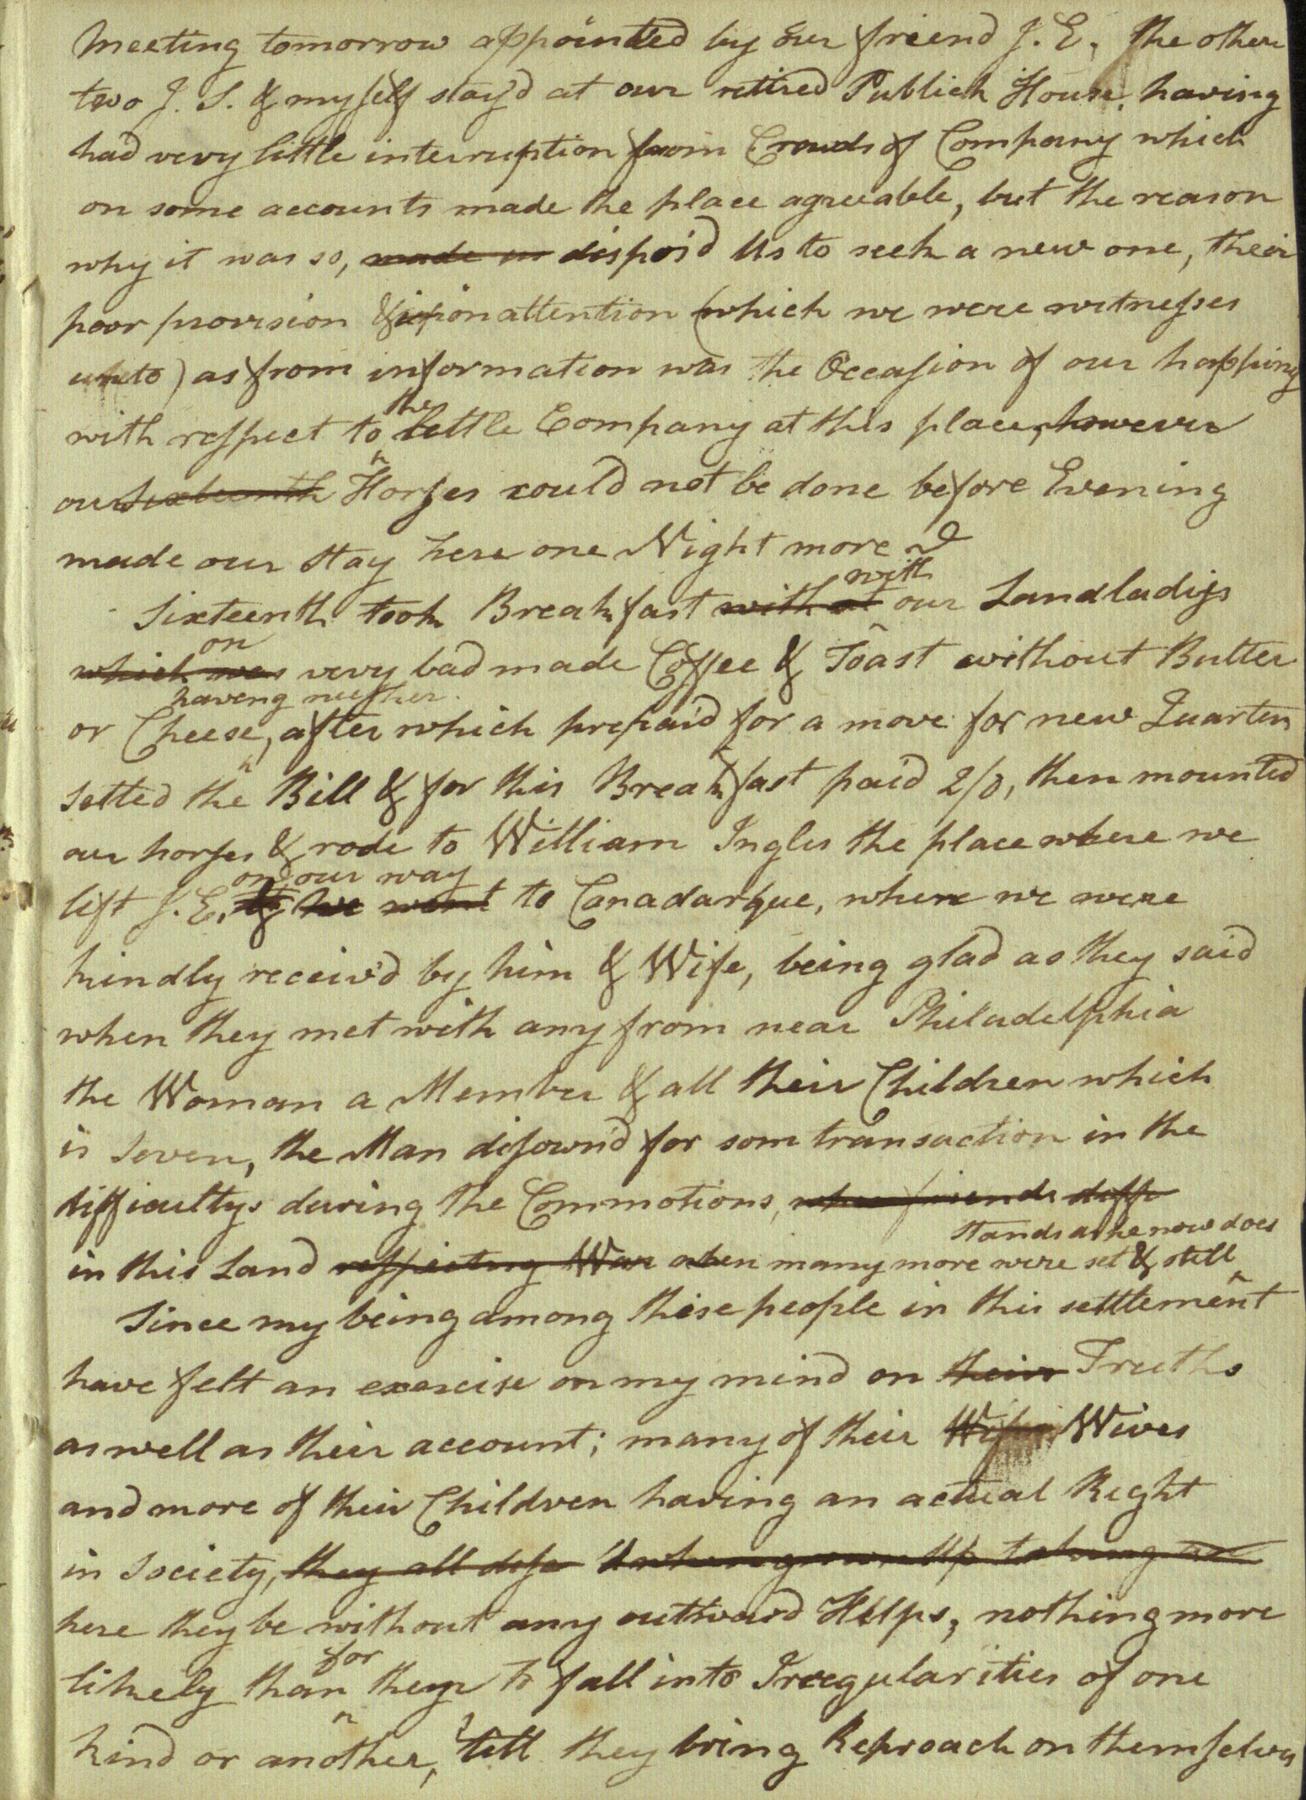 Meeting tomorrow appointed by our friend J. E. the other
two J. S. & myself stay'd at our retired Publick House, having
had very little interruption from Crowds of Company which
on some accounts made the place agreeable, but the reason
why it was so, made us dispos'd Us to seek a new one, their
poor provision & attention (which we were witnesses
unto) as from information was the Occasion of our happing
with respect to the little Company at this place, however
our sixteenth Horses could not be done before Evening
made our stay here one Night more
Sixteenth took Breakfast with at with our Landladys
which was on very bad made Coffee & Toast without Butter
or Cheese, having neither after which prepaid for a move for new Quarters
setted the Bill & for this Breakfast paid 2/0, then mounted
our horses & rode to William Ingles the place where we
left J. E. on our way we went to Canadarque, where we were
kindly receiv'd by him & Wife, being glad as they said
when they met with any from near Philadelphia
the Woman a Member & all their Children which
is Seven, the Man disown'd for som transaction in the
difficultys during the Commotions, when friends diff
in this Land respecting War when many more were set & still stands as he now does
Since my being among these people in this settlement
have felt an exercise on my mind on their Truths
as well as their account; many of their Wifes Wives
and more of their Children having an actual Right
in Society, they all dese & when grown Up taking
here they be without any outward Helps, nothing more
likely than for them to fall into Irregularities of one
kind or another, till they bring Reproach on themselves